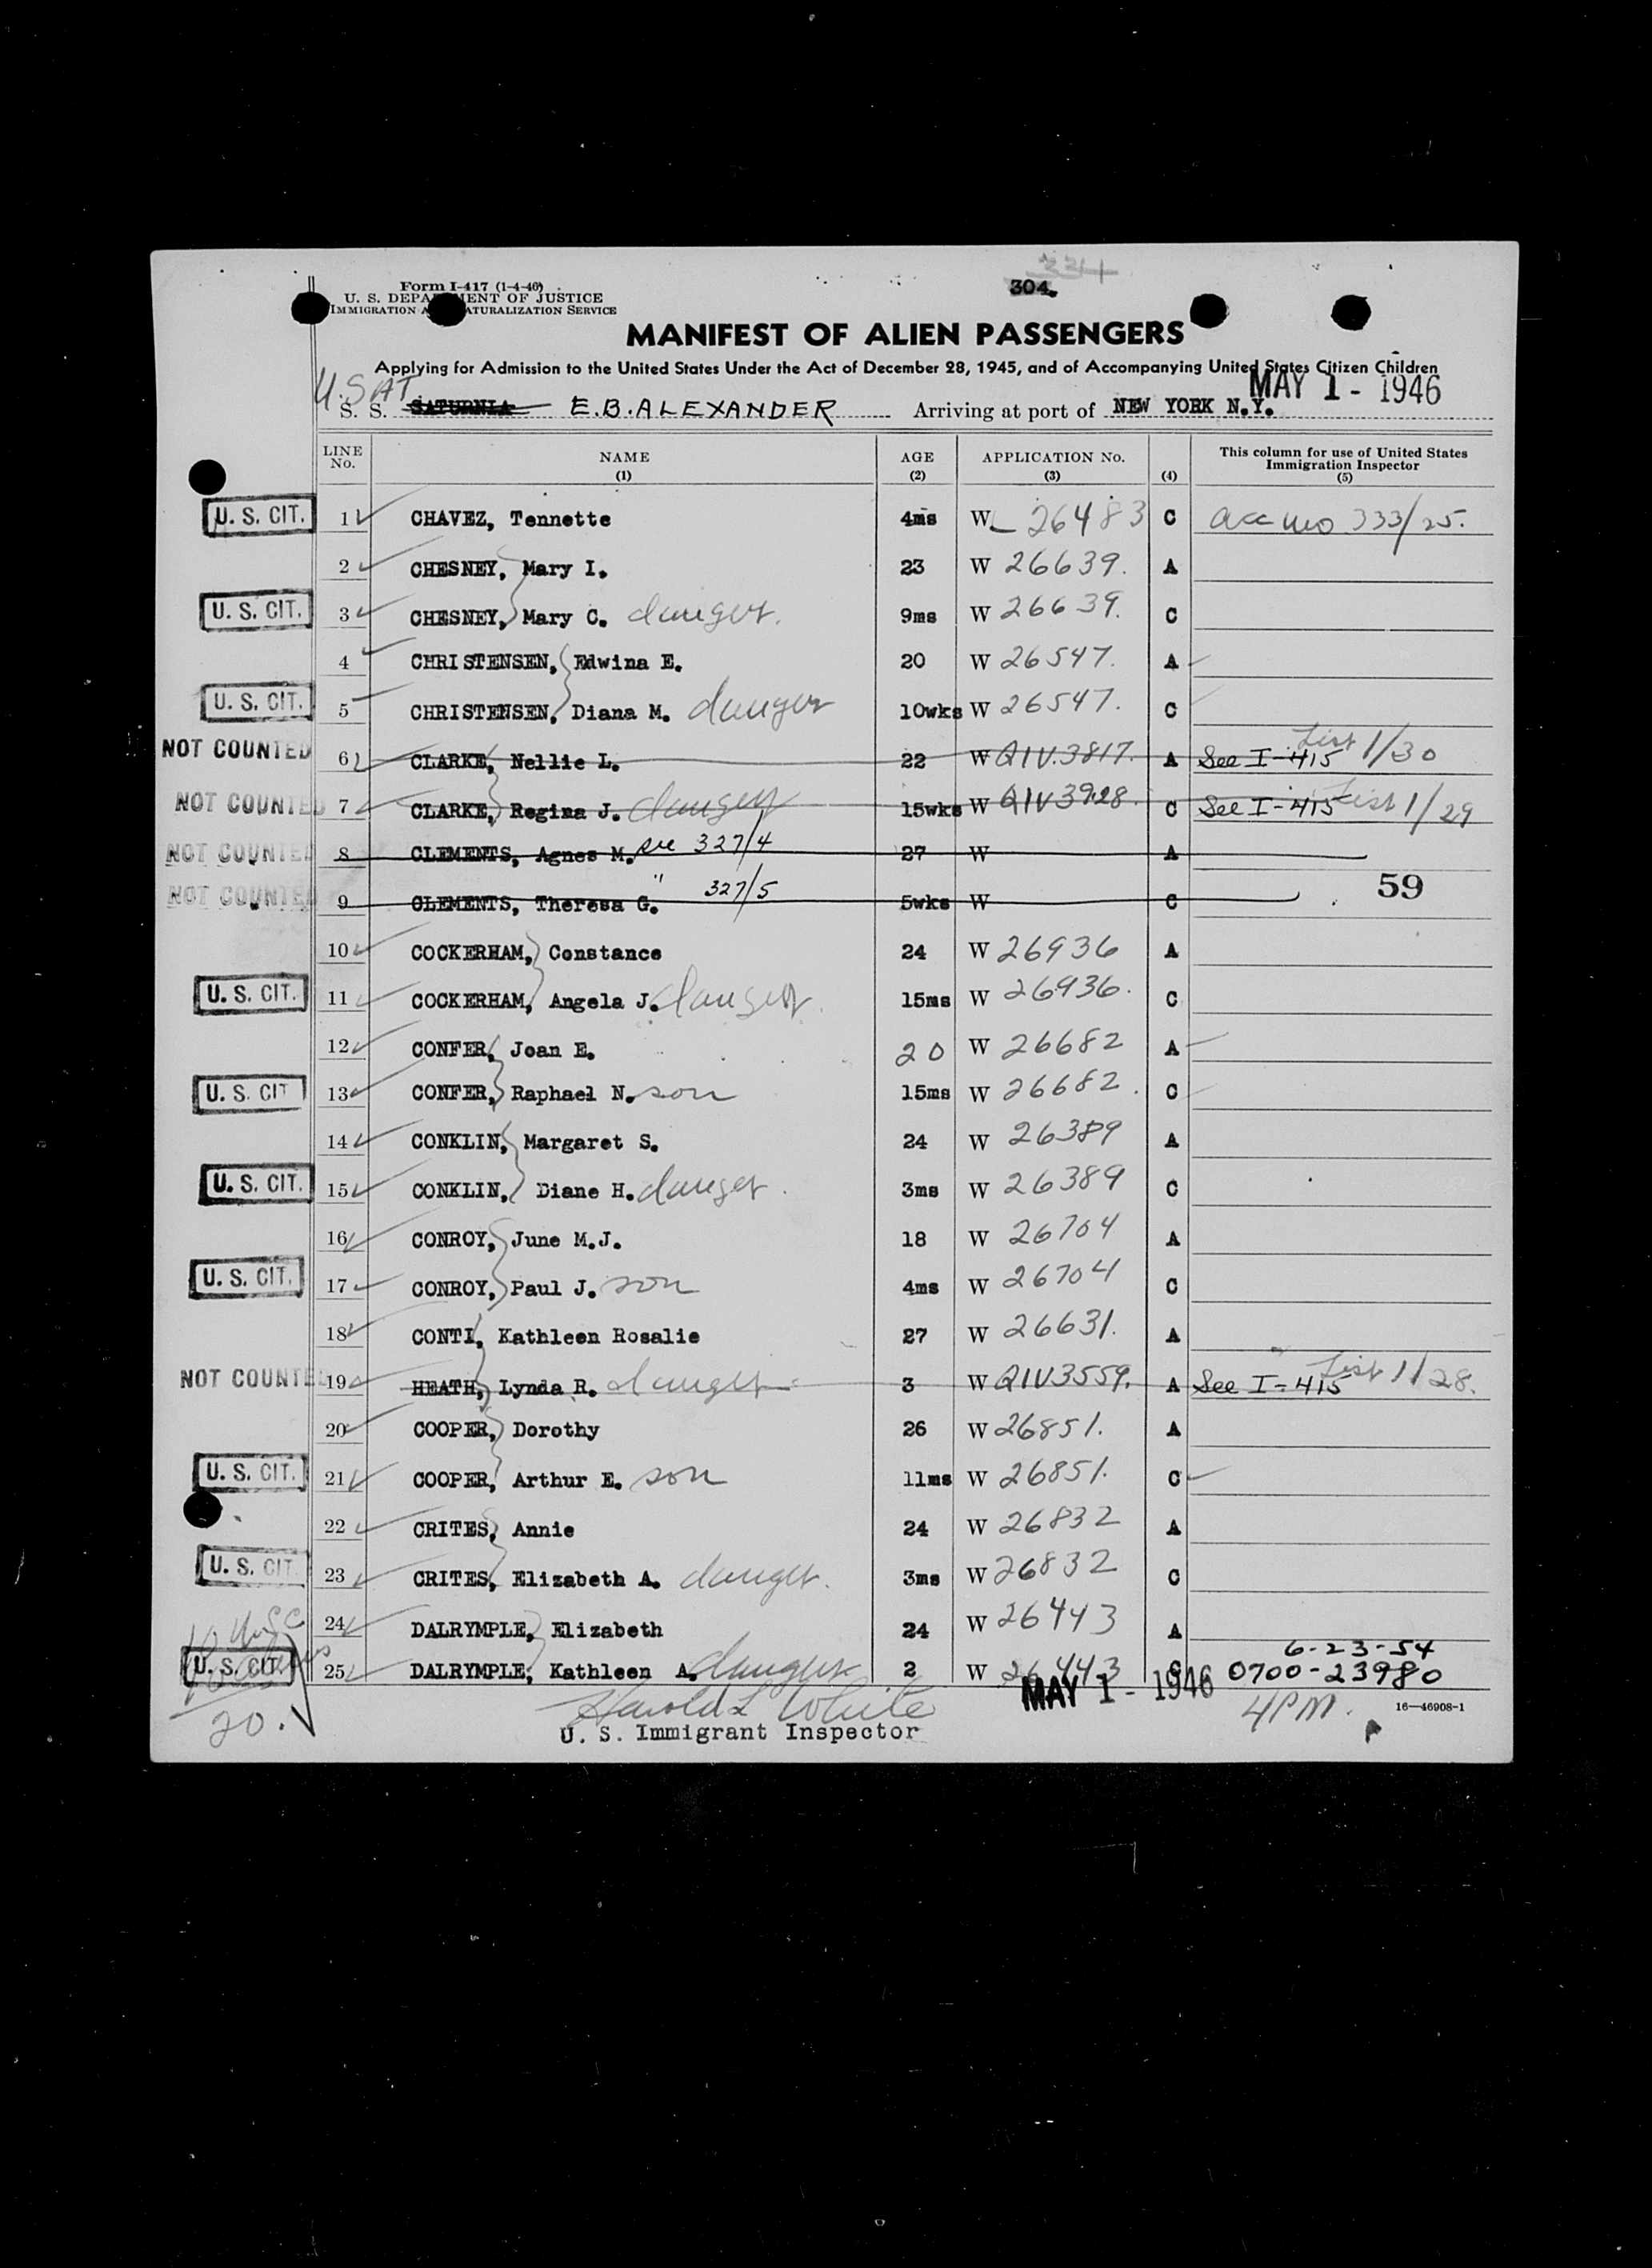 Form I-417 (1-4-46)
334
U. S. DEPA MENT OF JUSTICE
304.
IMMIGRATION A ATURALIZATION SERVICE
MANIFEST OF ALIEN PASSENGERS
Applying for Admission to the United States Under the Act of December 28, 1945, and of Accompanying United States Citizen Children
MAY 1 - 1946
U.S.A.T.
S. S. SATURNIA E.B. ALEXANDER Arriving at port of NEW YORK N.Y.
LINE No. NAME (1) AGE (2) APPLICATION No. (3) (4) This column for use of United States Immigration Inspector (5)
U. S. CIT. 1 CHAVEZ, Tennette 4ms W 26483 C acc mo 333/25.
2 CHESNEY, Mary I. 23 W 26639. A
U. S. CIT. 3 CHESNEY, Mary C. daugter. 9ms W 26639. C
4 CHRISTENSEN, Edwina E. 20 W 26547. A
U. S. CIT. 5 CHRISTENSEN, Diana M. daugter 10wks W 26547. C
NOT COUNTED 6 CLARKE, Nellie L. 22 W QIV.3817. A See I-415 List 1/30
NOT COUNTED 7 CLARKE, Regina J. daugter 15wks W QIV3928. C See I-415 List 1/29
NOT COUNTED 8 CLEMENTS, Agnes M. see 327/4 27 W A
NOT COUNTED 9 CLEMENTS, Theresa G. " 327/5 5wks W C 59
10 COCKERHAM, Constance 24 W 26936 A
U. S. CIT. 11 COCKERHAM, Angela J. daugter. 15ms W 26936. C
12 CONFER, Joan E. 20 W 26682 A
U. S. CIT 13 CONFER, Raphael N. son 15ms W 26682. C
14 CONKLIN, Margaret S. 24 W 26389 A
U. S. CIT. 15 CONKLIN, Diane H. daugter. 3ms W 26389 C
16 CONROY, June M.J. 18 W 26704 A
U. S. CIT. 17 CONROY, Paul J. son 4ms W 26704 C
18 CONTI, Kathleen Rosalie 27 W 26631. A
NOT COUNTED 19 HEATH, Lynda R. daugter 3 W QIV3559. A See I-415 List 1/28.
20 COOPER, Dorothy 26 W 26851. A
U. S. CIT. 21 COOPER, Arthur E. son 11ms W 26851. C
22 CRITES, Annie 24 W 26832 A
U. S. CIT. 23 CRITES, Elizabeth A. daugter. 3ms W 26832 C
USC
24 DALRYMPLE, Elizabeth 24 W 26443 A
6-23-54
U. S. CIT. 25 DALRYMPLE, Kathleen A. daugter 2 W 26443 C 0700-23980
MAY 1 - 1946
20. Harold L White 4PM. 16—46908-1
U. S. Immigrant Inspector